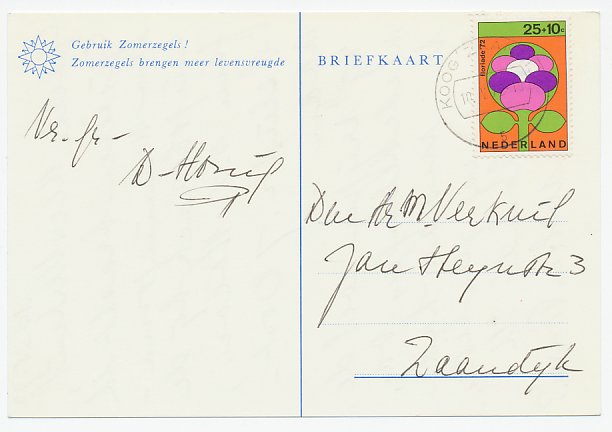 Gebruik Zomerzegels!
Zomerzegels brengen meer levensvreugde
Vr. gr.-
D. Honig
BRIEFKAART
25+10c
Floriade 72
NEDERLAND
KOOG
Den Hr M. Verkuil
Jan Heynstr 3
Zaandijk